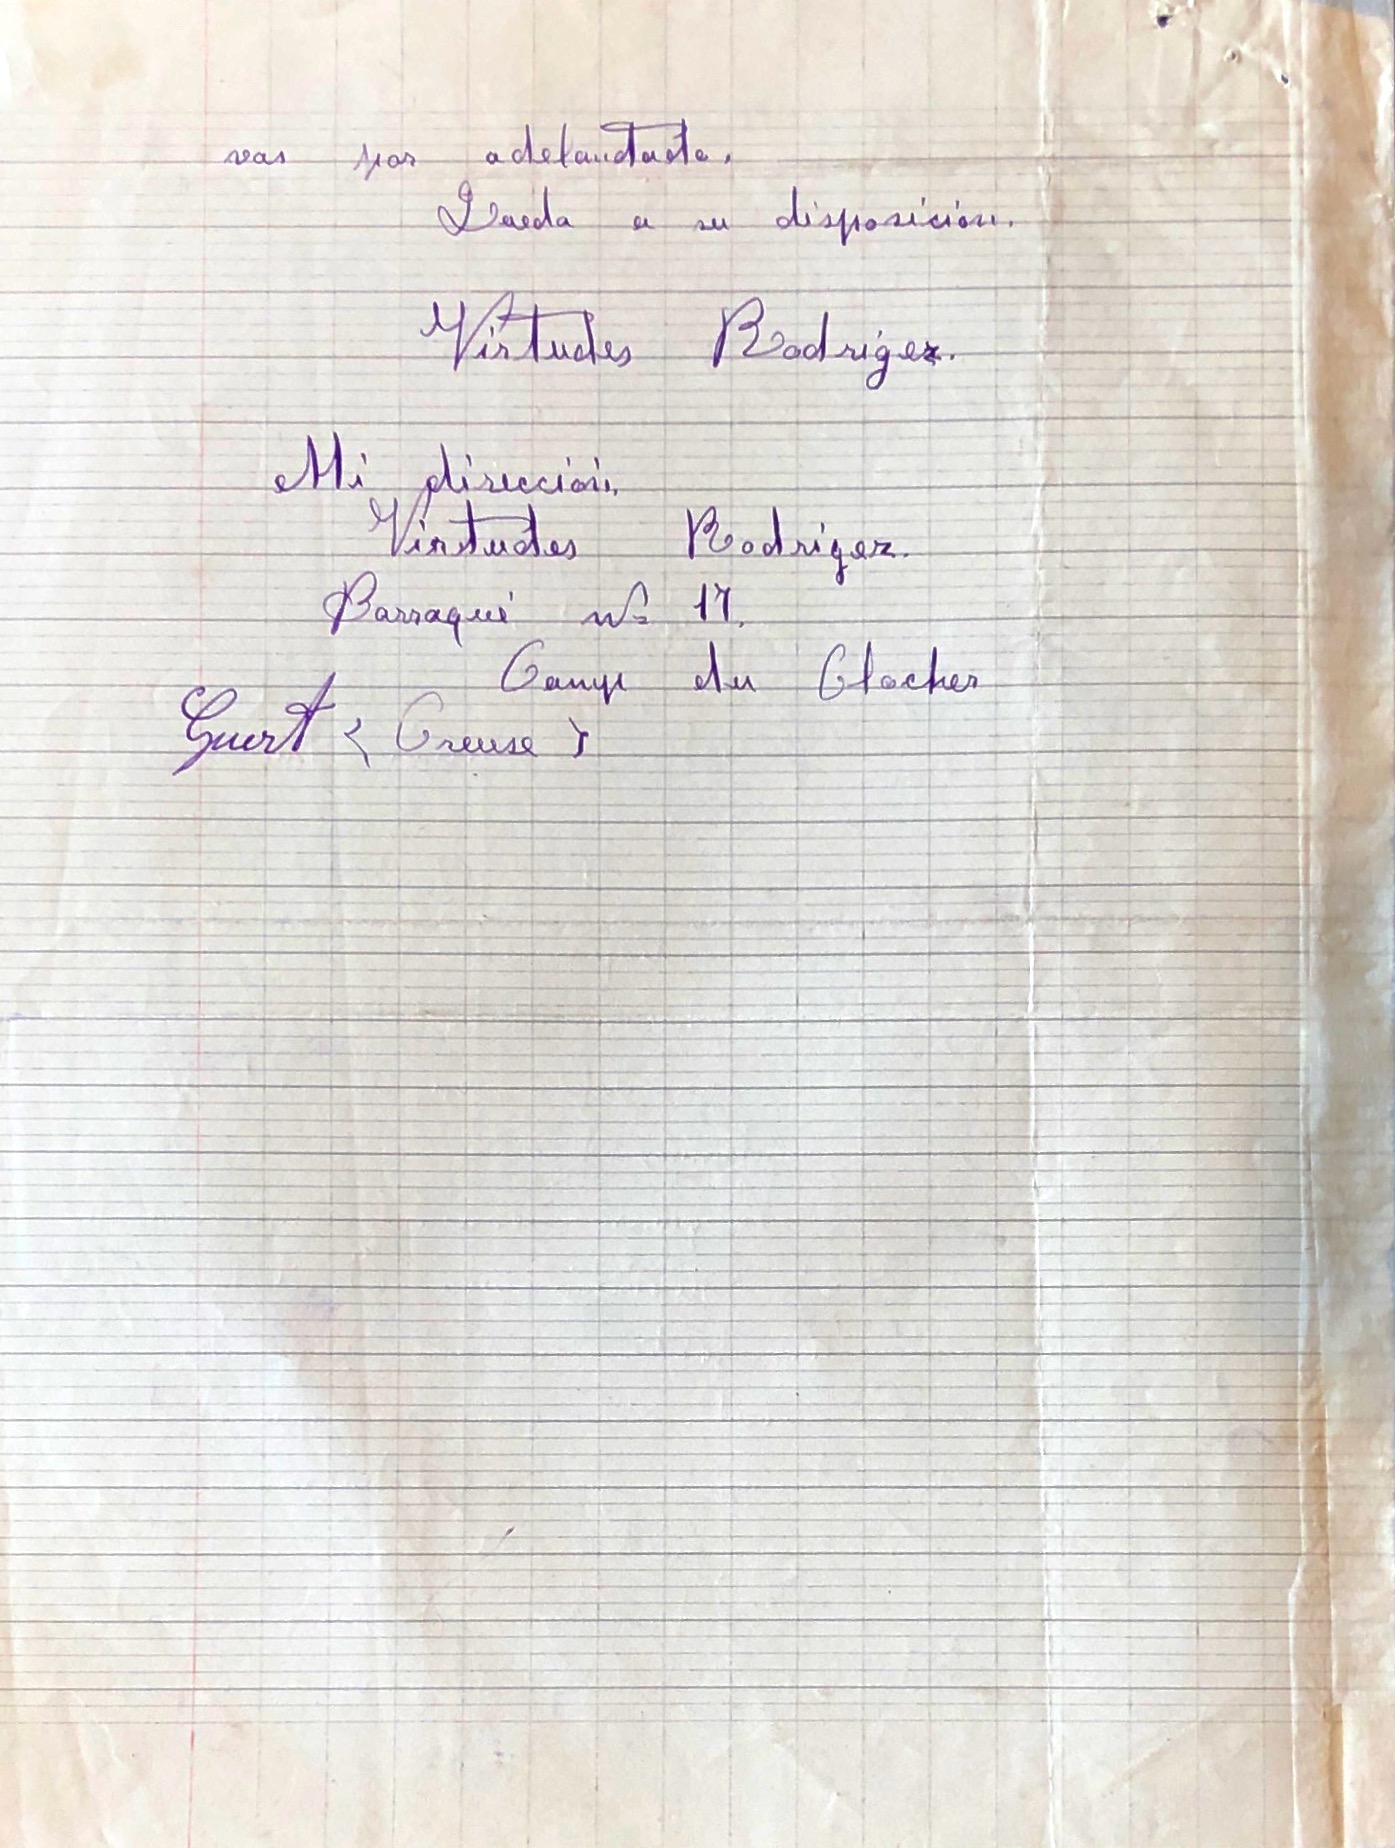 vas por adelantado.
Queda a su disposición.
Virtudes Rodrigez.
Mi dirección.
Virtudes Rodrigez.
Barraque nº 17.
Camp du Clocher
Guert (Creuse)